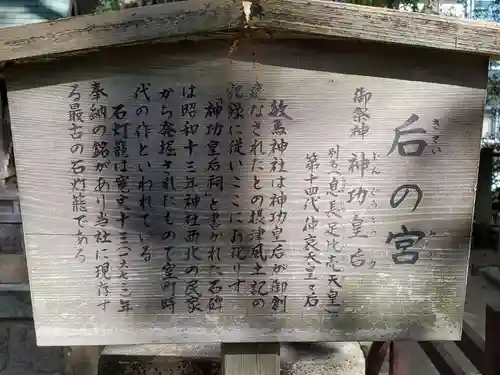 后の宮
御祭神 神功皇后
別名(息長足比売天皇)
第十四代 仲哀天皇々后
敏馬神社は神功皇后が御創
建なされたとの摂津風土記の
記録に従いここにお祀りす
神功皇后祠と書かれた石碑
は昭和十三年神社西北の民家
から発掘されたもので室町時
代の作といわれている
石灯籠は寛文十三一六七三年
奉納の銘があり当社に現存す
る最古の石灯籠である